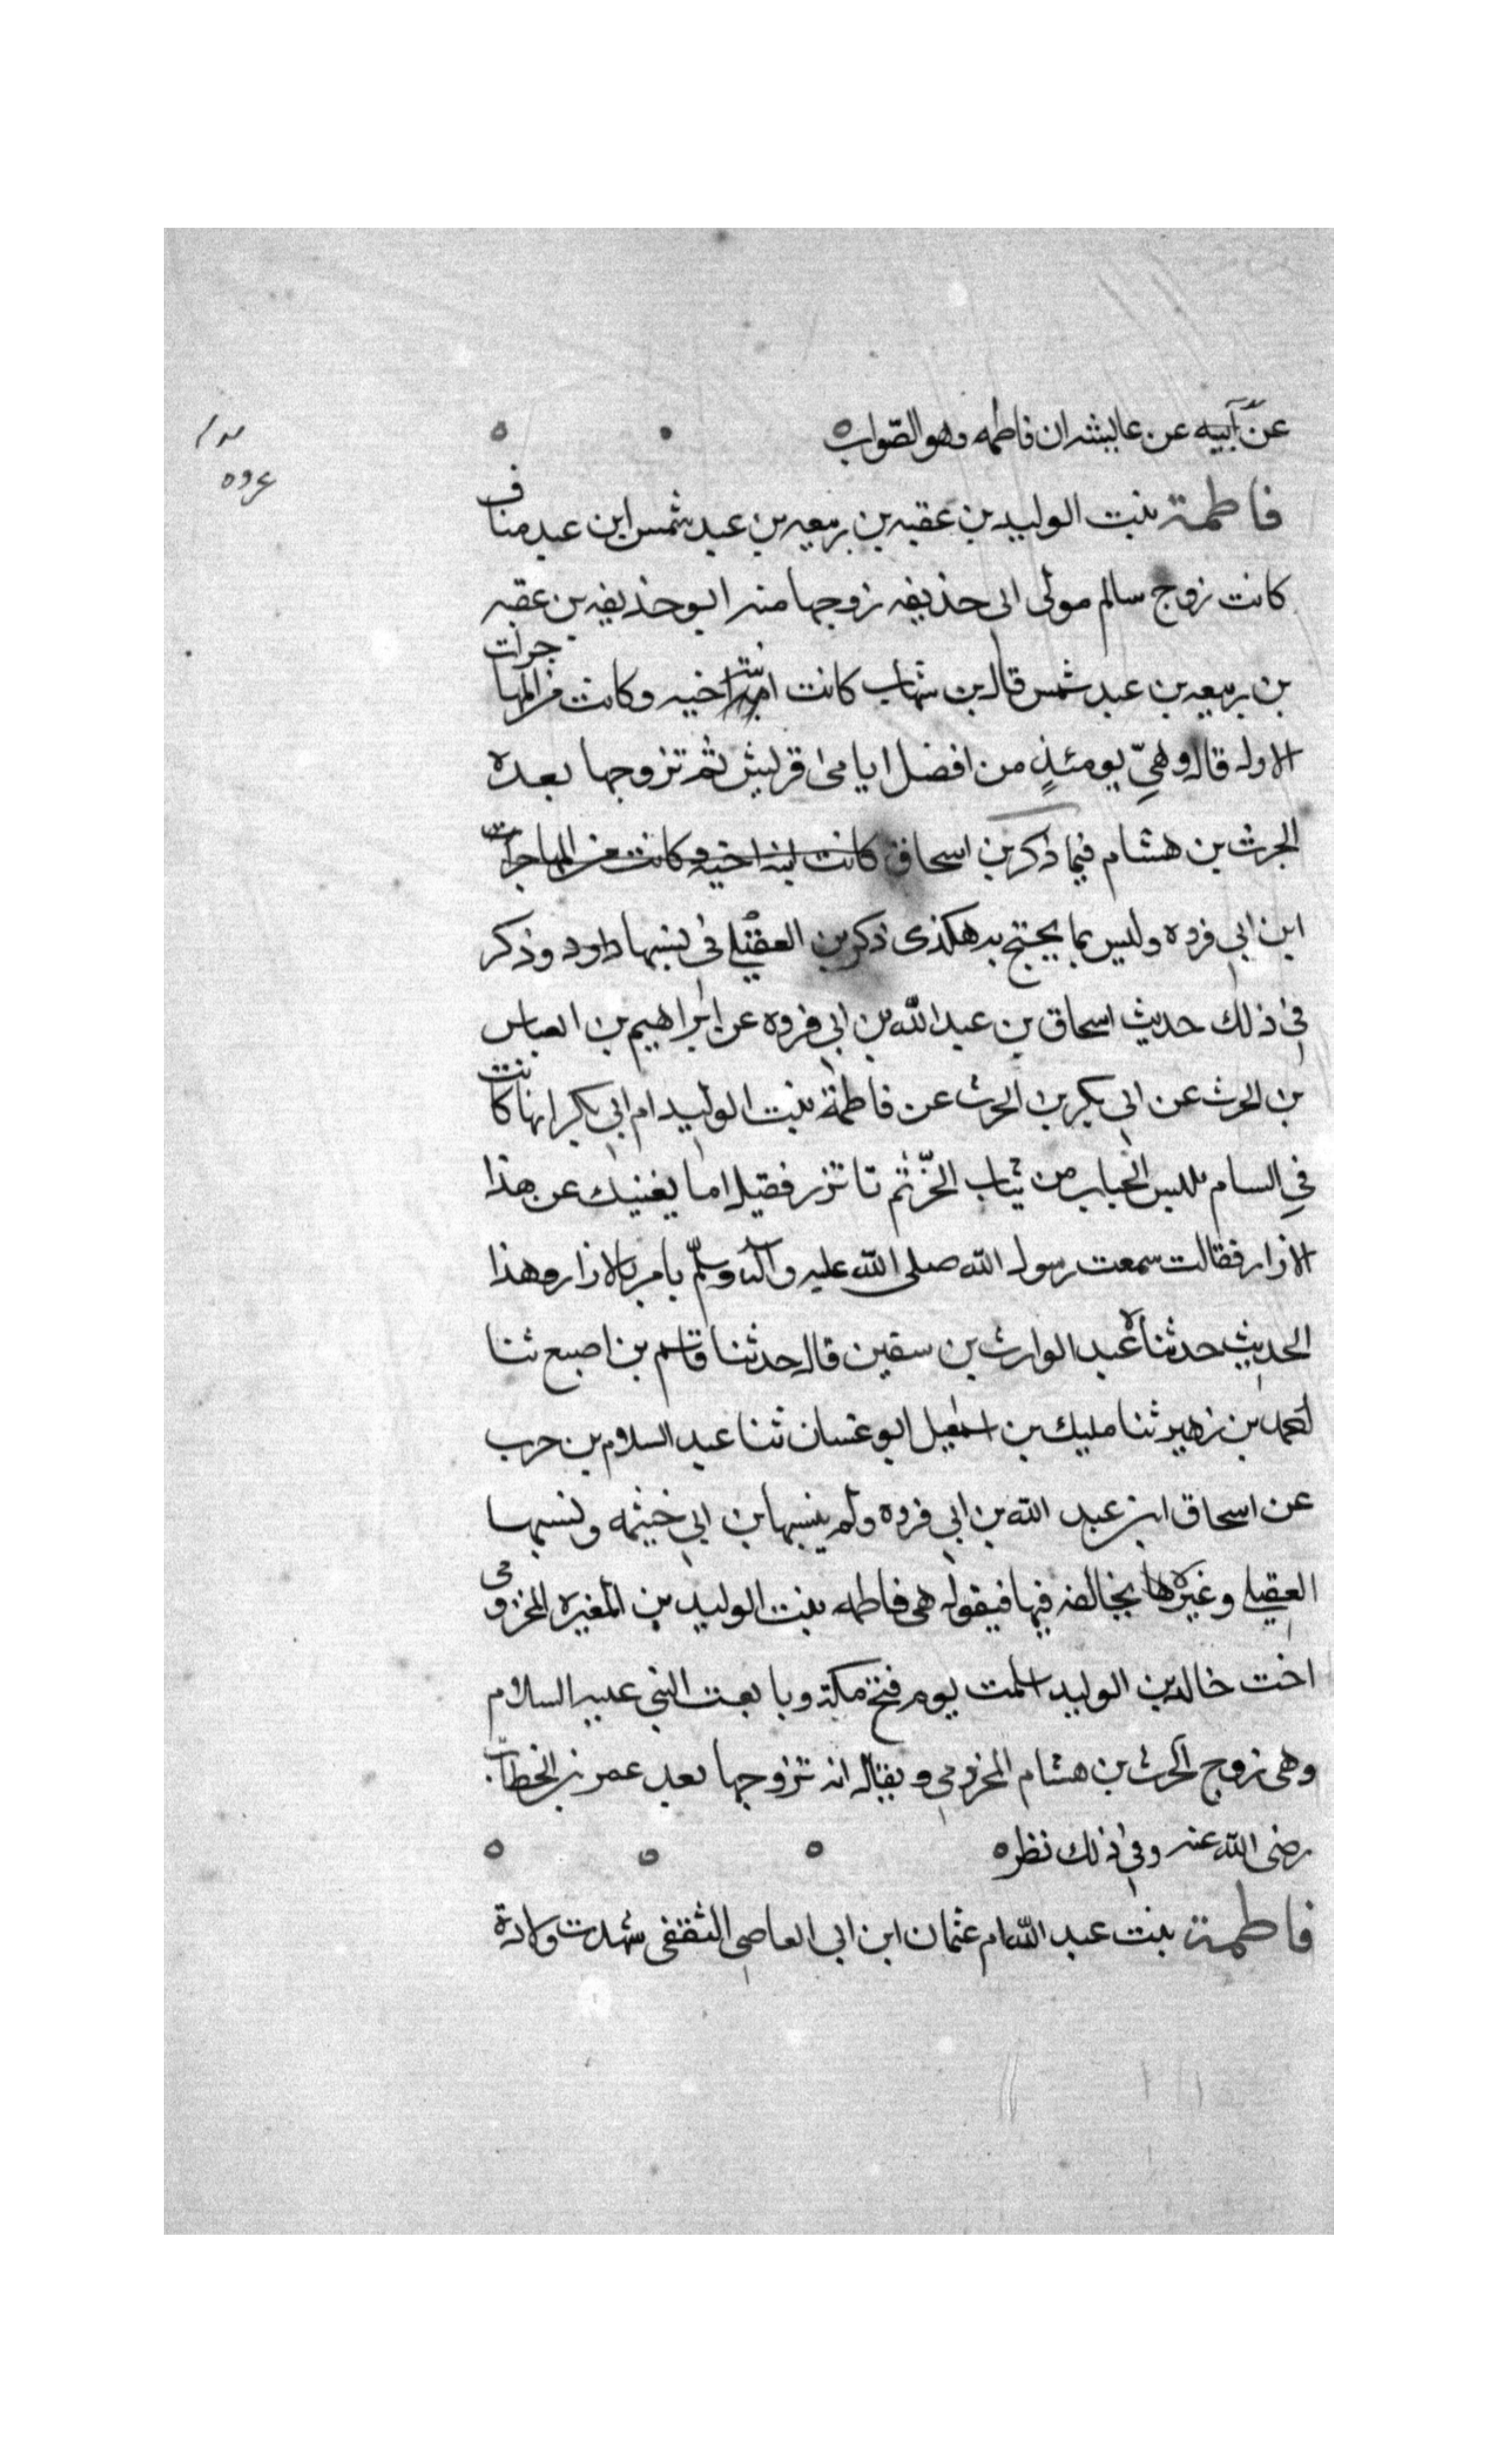 عن أبيه عن عايشه ان فاطمه وهو الصواب
عروه
فاطمة بنت الوليد بن عقبه بن ربيعه بن عبد شمس ابن عبد مناف
كانت زوج سالم مولى ابى حذيفه زوجها منه ابو حذيفه بن عقبه
بن ربيعه بن عبد شمس قال بن شهاب كانت ابنة اخيه وكانت من المهاجرات
الاول قال وهيّ يومئذٍ من افضل ايامى قريش ثم تزوجها بعده
الحرث بن هشام فيما ذكر بن اسحاق كانت ابنه اخيه وكانت من المهاجرات
ابن ابي فروه وليس بما يحتج به هكذى ذكر بن العقيلي فى نسبها داود وذكر
في ذلك حديث اسحاق بن عبد الله بن ابي فروه عن ابراهيم بن العباس
بن الحرث عن ابى بكر بن الحرث عن فاطمة بنت الوليد ام ابي بكر انها كانت
في السام تلبس الجباب من ثياب الخزّ ثم تاتزر فقيل اما يغنيك عن هذا
الازار فقالت سمعت رسول الله صلى الله عليه واله وسلّم يامر بالازار وهذا
الحديث حدثناه عبد الوارث بن سفين قال حدثنا قاسم بن اصبع ثنا
احمد بن زهير ثنا مليك بن اسمعيل ابو غسان ثنا عبد السلام بن حرب
عن اسحاق ابن عبد الله بن ابي فروه ولم ينسبها بن ابي خيثمه ونسبها
العقيلي وغيره يخالفه فيها فيقول هي فاطمه بنت الوليد بن المغيره المخزومى
اخت خالد بن الوليد اسلمت يوم فتح مكة وبايعت النبى عليه السلام
وهى زوج الحرث بن هشام المخزومي ويقال انه تزوجها بعد عمر بن الخطاب
رضى الله عنه وفي ذلك نظر
فاطمة بنت عبد الله ام عثمان ابن ابى العاصى الثقفى شهدت ولادة